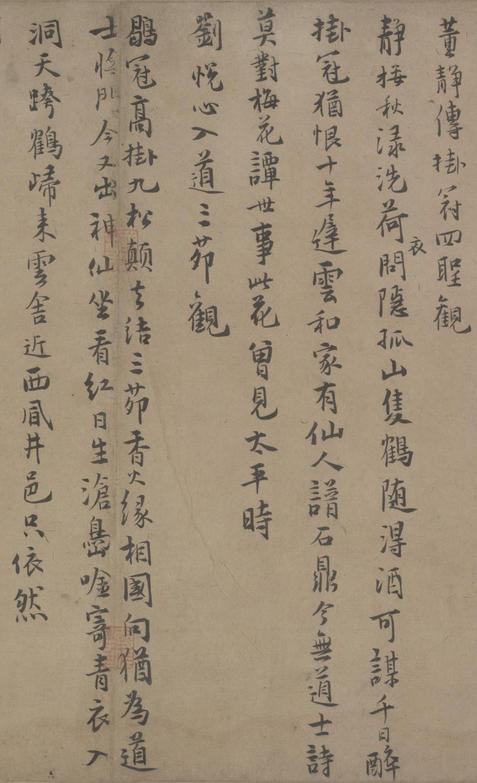 董靜傳掛冠四聖觀
靜挼秋淥洗荷衣問隱孤山隻鶴随得酒可謀千日醉
掛冠猶恨十年遲雲和家有仙人譜石鼎今無道士詩
莫對梅花譚世事此花曾見太平時
劉悅心入道三茆觀
鶡冠高掛九松顛去結三茆香火緣相國向猶為道
士將門今又出神仙坐看紅日生滄島唫寄青衣入
洞天跨鶴歸来雲舍近西風井邑只依然